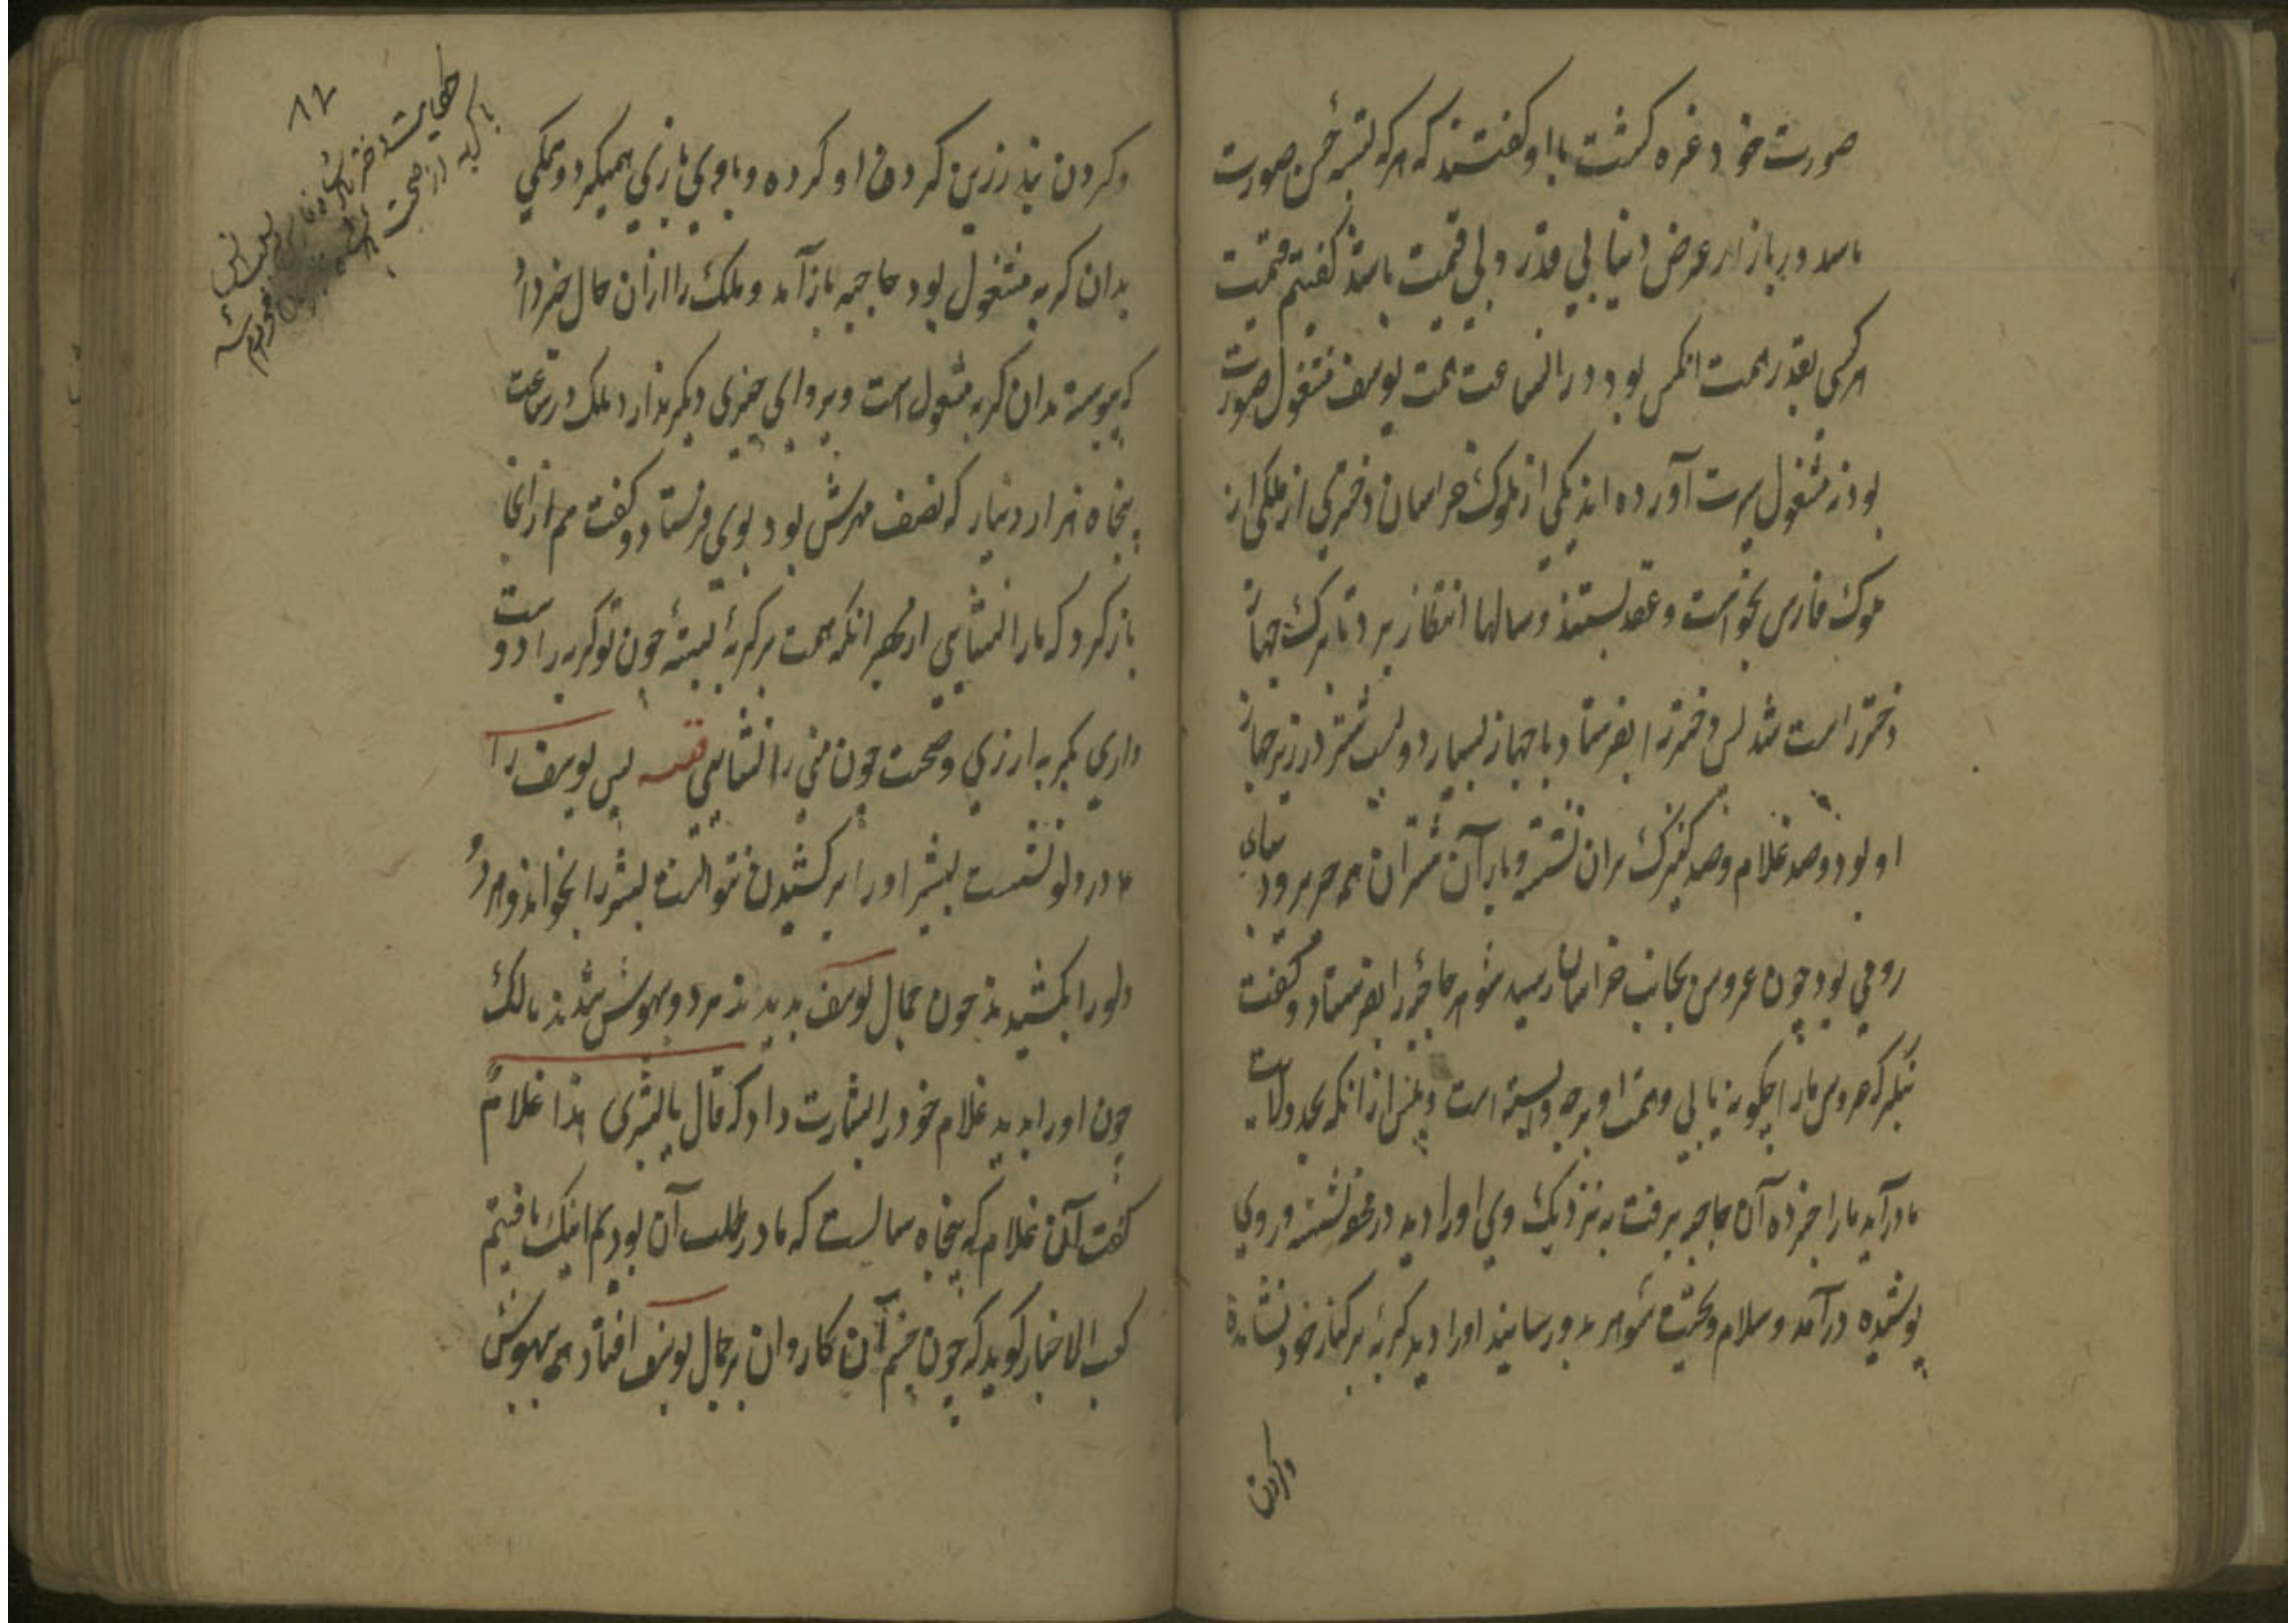 صورت خود غره کشت با او کفتند که هر که بسته حسن صورت
باسد در بازار عرض دنیا بی قدر و بی قیمت باشد کفتیم قیمت
هر کسی بقدر همت انکس بود در انساعت همت یوسف مشغول صورت
بود نه مشغول سیرت آورده اند یکی از ملوک خراسان دختری از ملکی از
ملوک فارس بخواست و عقد بستند و سالها انتظار برد تا برک جهاز
دختر راست شد بس دختر را بفرستاد با جهاز بسیار دویست شتر در زیر جهاز
او بود و صد غلام و صد کنیزک بران نشسته و بار آن شتران همه حریر و دیبای
رومی بود چون عروس بجانب خراسان رسید شوهر حاجبه را بفرستاد و کفت
بنکر که عروس مارا چکونه یابی و همت او بر چه وابسته است و بیش از انکه بحد ولایت
ما درآید مارا خبر ده آن حاجبه برفت به نزدیک وی او را دید در محفه نشسته و روی
پوشیده درآمد و سلام و تحیت شوهر بدو رسانید او را دید کربهٔ بر کنار خود نشانده
و کردن
۸۲
حکایت دختر
با کربه از صحبت
محروم شد
و کردن بند زرین کردن او کرده و با وی بازی همیکرد و همکی
بدان کربه مشغول بود حاجبه باز آمد و ملک را ازان حال خبر داد
که پیوسته بدان کربه مشغول است و پروای چیزی دیکر ندارد ملک در ساعت
پنجاه هزار دینار که نصف مهرش بود بوی فرستاد و کفت هم از انجا
باز کرد که مارا نشایی از بهر انکه همت بر کربهٔ بستهٔ چون تو کربه را دوست
داری بکربه ارزی و صحبت چون منی را نشایی قصه پس یوسف را
ع در دلو نشست بشیر او را بر کشیدن نتوانست بشر را بخواند و هر دو
دلو را بکشیدند چون جمال یوسف بدیدند هر دو بیهوش شدند مالک
چون او را بدید غلام خود را بشارت داد که قال یا بشری هذا غلام
کفت آن غلام که پنجاه سالست که ما در طلب آن بودیم اینک یافتیم
کعب الاخبار کوید که چون چشم آن کاروان بر جمال یوسف افتاد همه بیهوش